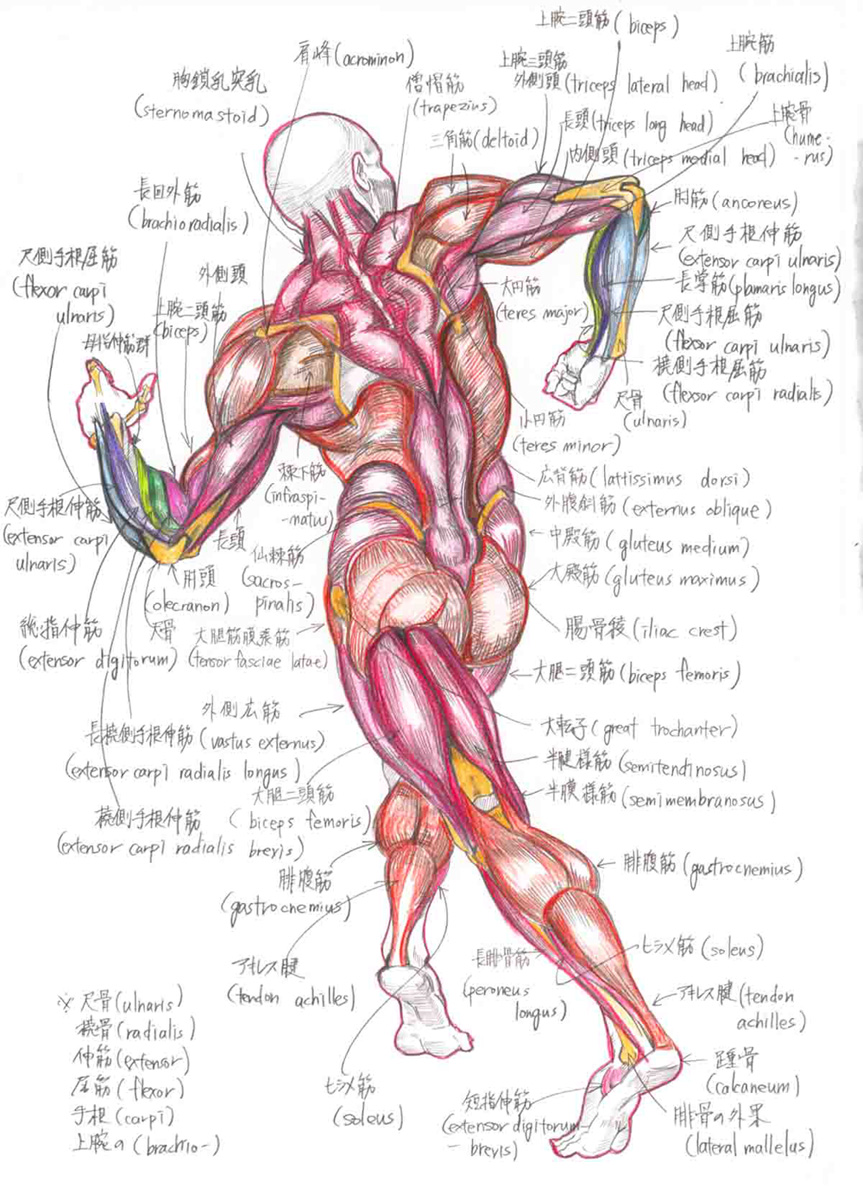 上腕二頭筋(biceps)
肩峰(acrominon)
上腕三頭筋
外側頭(triceps lateral head)
上腕筋
(brachialis)
胸鎖乳突乳
(sternomastoid)
僧帽筋
(trapezius)
長頭(triceps long head)
上腕骨
(hume-
-rus)
三角筋(deltoid)
内側頭(triceps medial head)
長回外筋
(brachioradialis)
肘筋(anconeus)
尺側手根伸筋
(extensor carpi ulnaris)
尺側手根屈筋
(flexor carpi
ulnaris)
外側頭
上腕二頭筋
(biceps)
大円筋
(teres major)
長掌筋(plamaris longus)
尺側手根屈筋
(flexsor carpi ulnaris)
母指伸筋群
橈側手根屈筋
(flexsor carpi radialis)
尺骨
(ulnaris)
小円筋
(teres minor)
棘下筋
(infraspi-
-matus)
広背筋(lattissimus dorsi)
外腹斜筋(externus oblique)
尺側手根伸筋
(extensor carpi
ulnaris)
長頭
仙棘筋
(sacros-
pinalis)
中殿筋(gluteus medium)
大殿筋(gluteus maximus)
肘頭
(olecranon)
尺骨
総指伸筋
(extensor digitorum)
大腿筋膜張筋
(tensor fasciae latae)
腸骨稜(iliac crest)
大腿二頭筋(biceps femoris)
外側広筋
(vastus externus)
長橈側手根伸筋
(extensor carpi radialis longus)
大転子(great trochanter)
半腱様筋(semitendinosus)
半膜様筋(semimembranosus)
大腿二頭筋
(biceps femoris)
橈側手根伸筋
(extensor carpi radialis brevis)
腓腹筋
(gastrocnemius)
腓腹筋(gastrocnemius)
アキレス腱
(tendon achilles)
長腓骨筋
(peroneus
longus)
ヒラメ筋(soleus)
アキレス腱(tendon
achilles)
※尺骨(ulnaris)
橈骨(radialis)
伸筋(extensor)
屈筋(flexor)
手根(carpi)
上腕の(brachio-)
ヒラメ筋
(soleus)
短指伸筋
(extensor digitorum-
-brevis)
踵骨
(calcaneum)
腓骨の外果
(lateral mallelus)